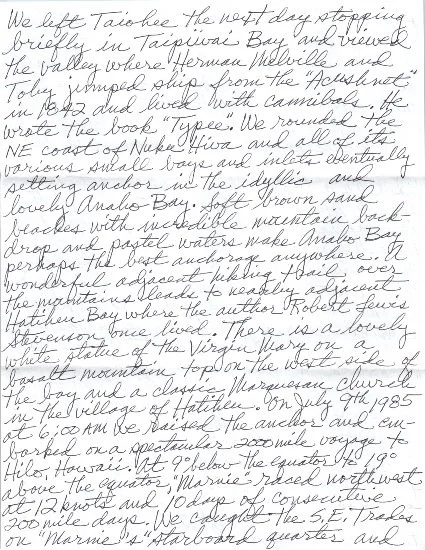 We left Taiohee the next day stopping
briefly in Taipiivai Bay and viewed
the valley where Herman Melville and
Toby jumped ship from the "Acushnet"
in 1842 and lived with cannibals. He
wrote the book "Typee". We rounded the
NE coast of Nuku Hiva and all of its
various small bays and inlets eventually
setting anchor in the idyllic and
lovely Anaho Bay. Soft brown sand
beaches with incredible mountain back-
drop and pastel waters make Anaho Bay
perhaps the best anchorage anywhere. A
wonderful adjacent hiking trail over
the mountains leads to nearby adjacent
Hatiheu Bay where the author Robert Lewis
Stevenson once lived. There is a lovely
white statue of the Virgin Mary on a
basalt mountain top on the west side of
the bay and a classic Marquesan church
in the village of Hatiheu. On July 9th 1985
at 6:00 AM we raised the anchor and em-
barked on a spectacular 2000 mile voyage to
Hilo, Hawaii. At 9° below the equator to 19°
above the equator, "Marnie" raced northwest
at 12 knots and 10 days of consecutive
200 mile days. We caught the S.E. Trades
on "Marnie's" starboard quarter and